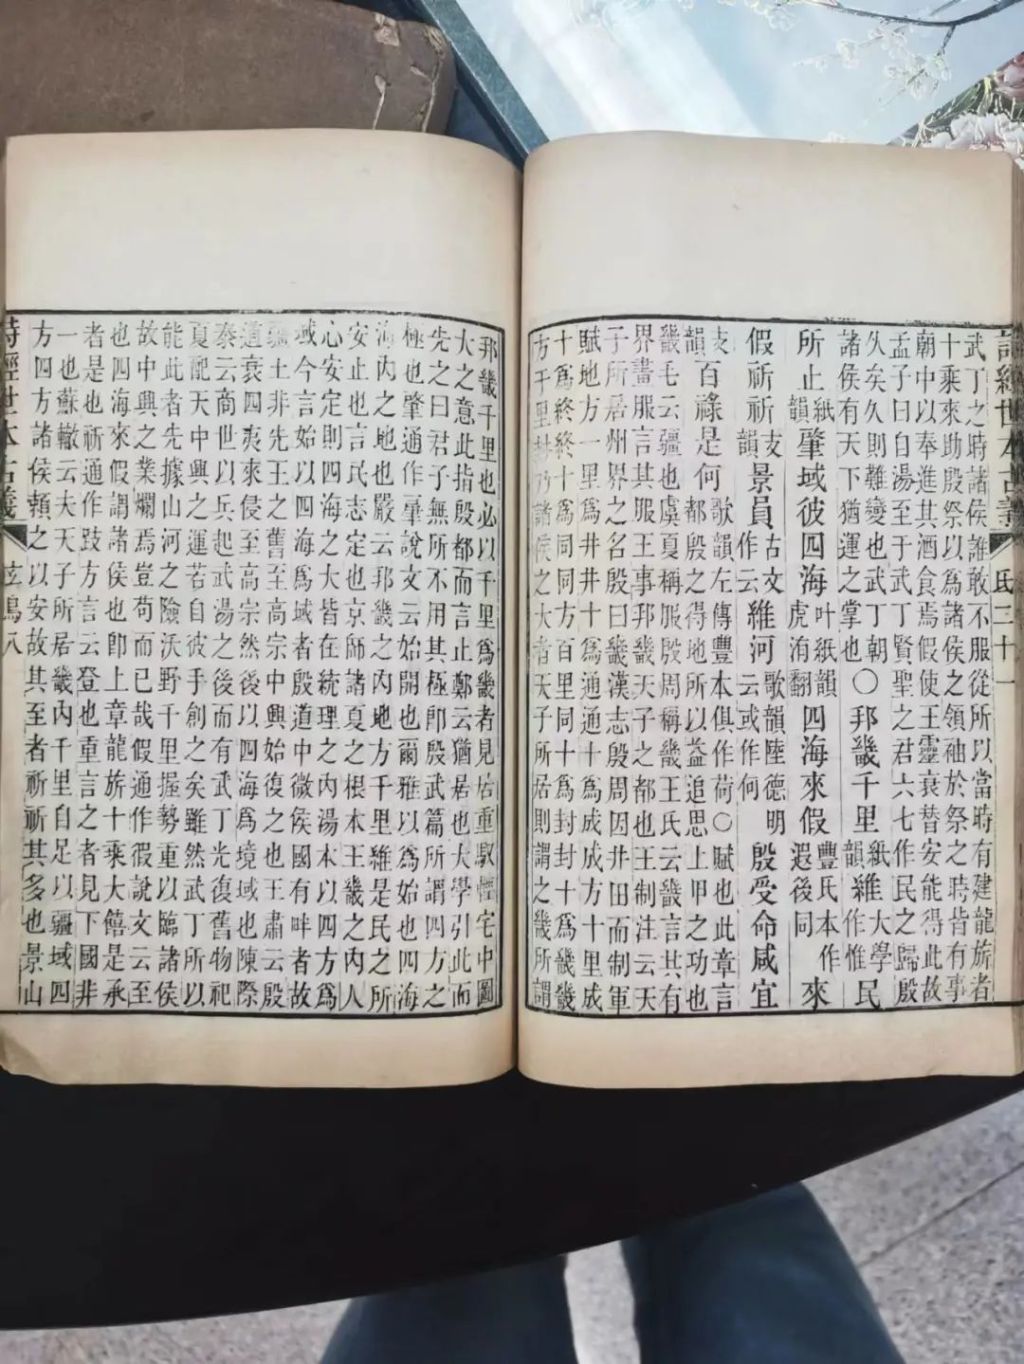 詩經世本古義 氏三十一
武丁之時諸侯誰敢不服從所以當時有建龍旂者
十乘來助殷祭以為諸侯之領袖於祭之時皆有事
朝中以奉進其酒食焉假使王靈衰替安能得此故
孟子曰自湯至于武丁賢聖之君六七作民之歸殷
久矣久則難變也武丁朝
諸侯有天下猶運之掌也○邦畿千里紙韻維大學作惟民
所止紙韻肇域彼四海叶紙韻虎洧翻四海來假豐氏本作遐後同來
假祈祈支韻景員古文作云維河歌韻陸德明云或作何殷受命咸宜
支韻百祿是何歌韻左傳豐本俱作荷○賦也此章言
都殷之得地利所以益追思上甲之功也
畿毛云疆也虞夏稱服殷周稱畿王氏云畿言其有
界畫服言其服王事邦畿天子之都也王制注云天
子所居州界之名殷曰畿漢志殷周因井田而制軍
賦地方一里為井井十為通通十為成成方十里成
十為終終十為同同方百里同十為封封十為畿畿
方千里封乃諸侯之大者天子所居則謂之畿所謂
邦畿千里也必以千里為畿者見居重馭輕宅中圖
大之意此指殷都而言止鄭云猶居也大學引此而
先之曰君子無所不用其極即殷武篇所謂四方之
極也肇通作肁說文云始開也爾雅以為始也四海
海內之地也嚴云邦畿之內地方千里維是民之所
安止也言民志定也京師諸夏之根本王畿之內人
心安定則四海之大皆在統理之內湯本以四方為
域今言始以四海為域者殷道中微侯國有畔者故
疆土非先王之舊至高宗中興始復之也王肅云殷
道衰四夷來侵至高宗然後以四海為境域也陳際
泰云商世以兵起武湯之後而有武丁光復舊物祀
夏配天中興之運若自彼手創之矣雖然武丁所以
能此者先據山河之險沃野千里握勢重以臨諸侯
故中興之業爛焉豈苟而已哉假通作徦說文云至
也四海來假謂諸侯也即上章龍旂十乘大饎是承
者是也祈通作䟚方言云登也重言之者見下國非
一也蘇轍云夫天子所居畿內千里自足以疆域四
方四方諸侯賴之以安故其至者祈祈其多也景山
詩經世本古義 玄鳥八